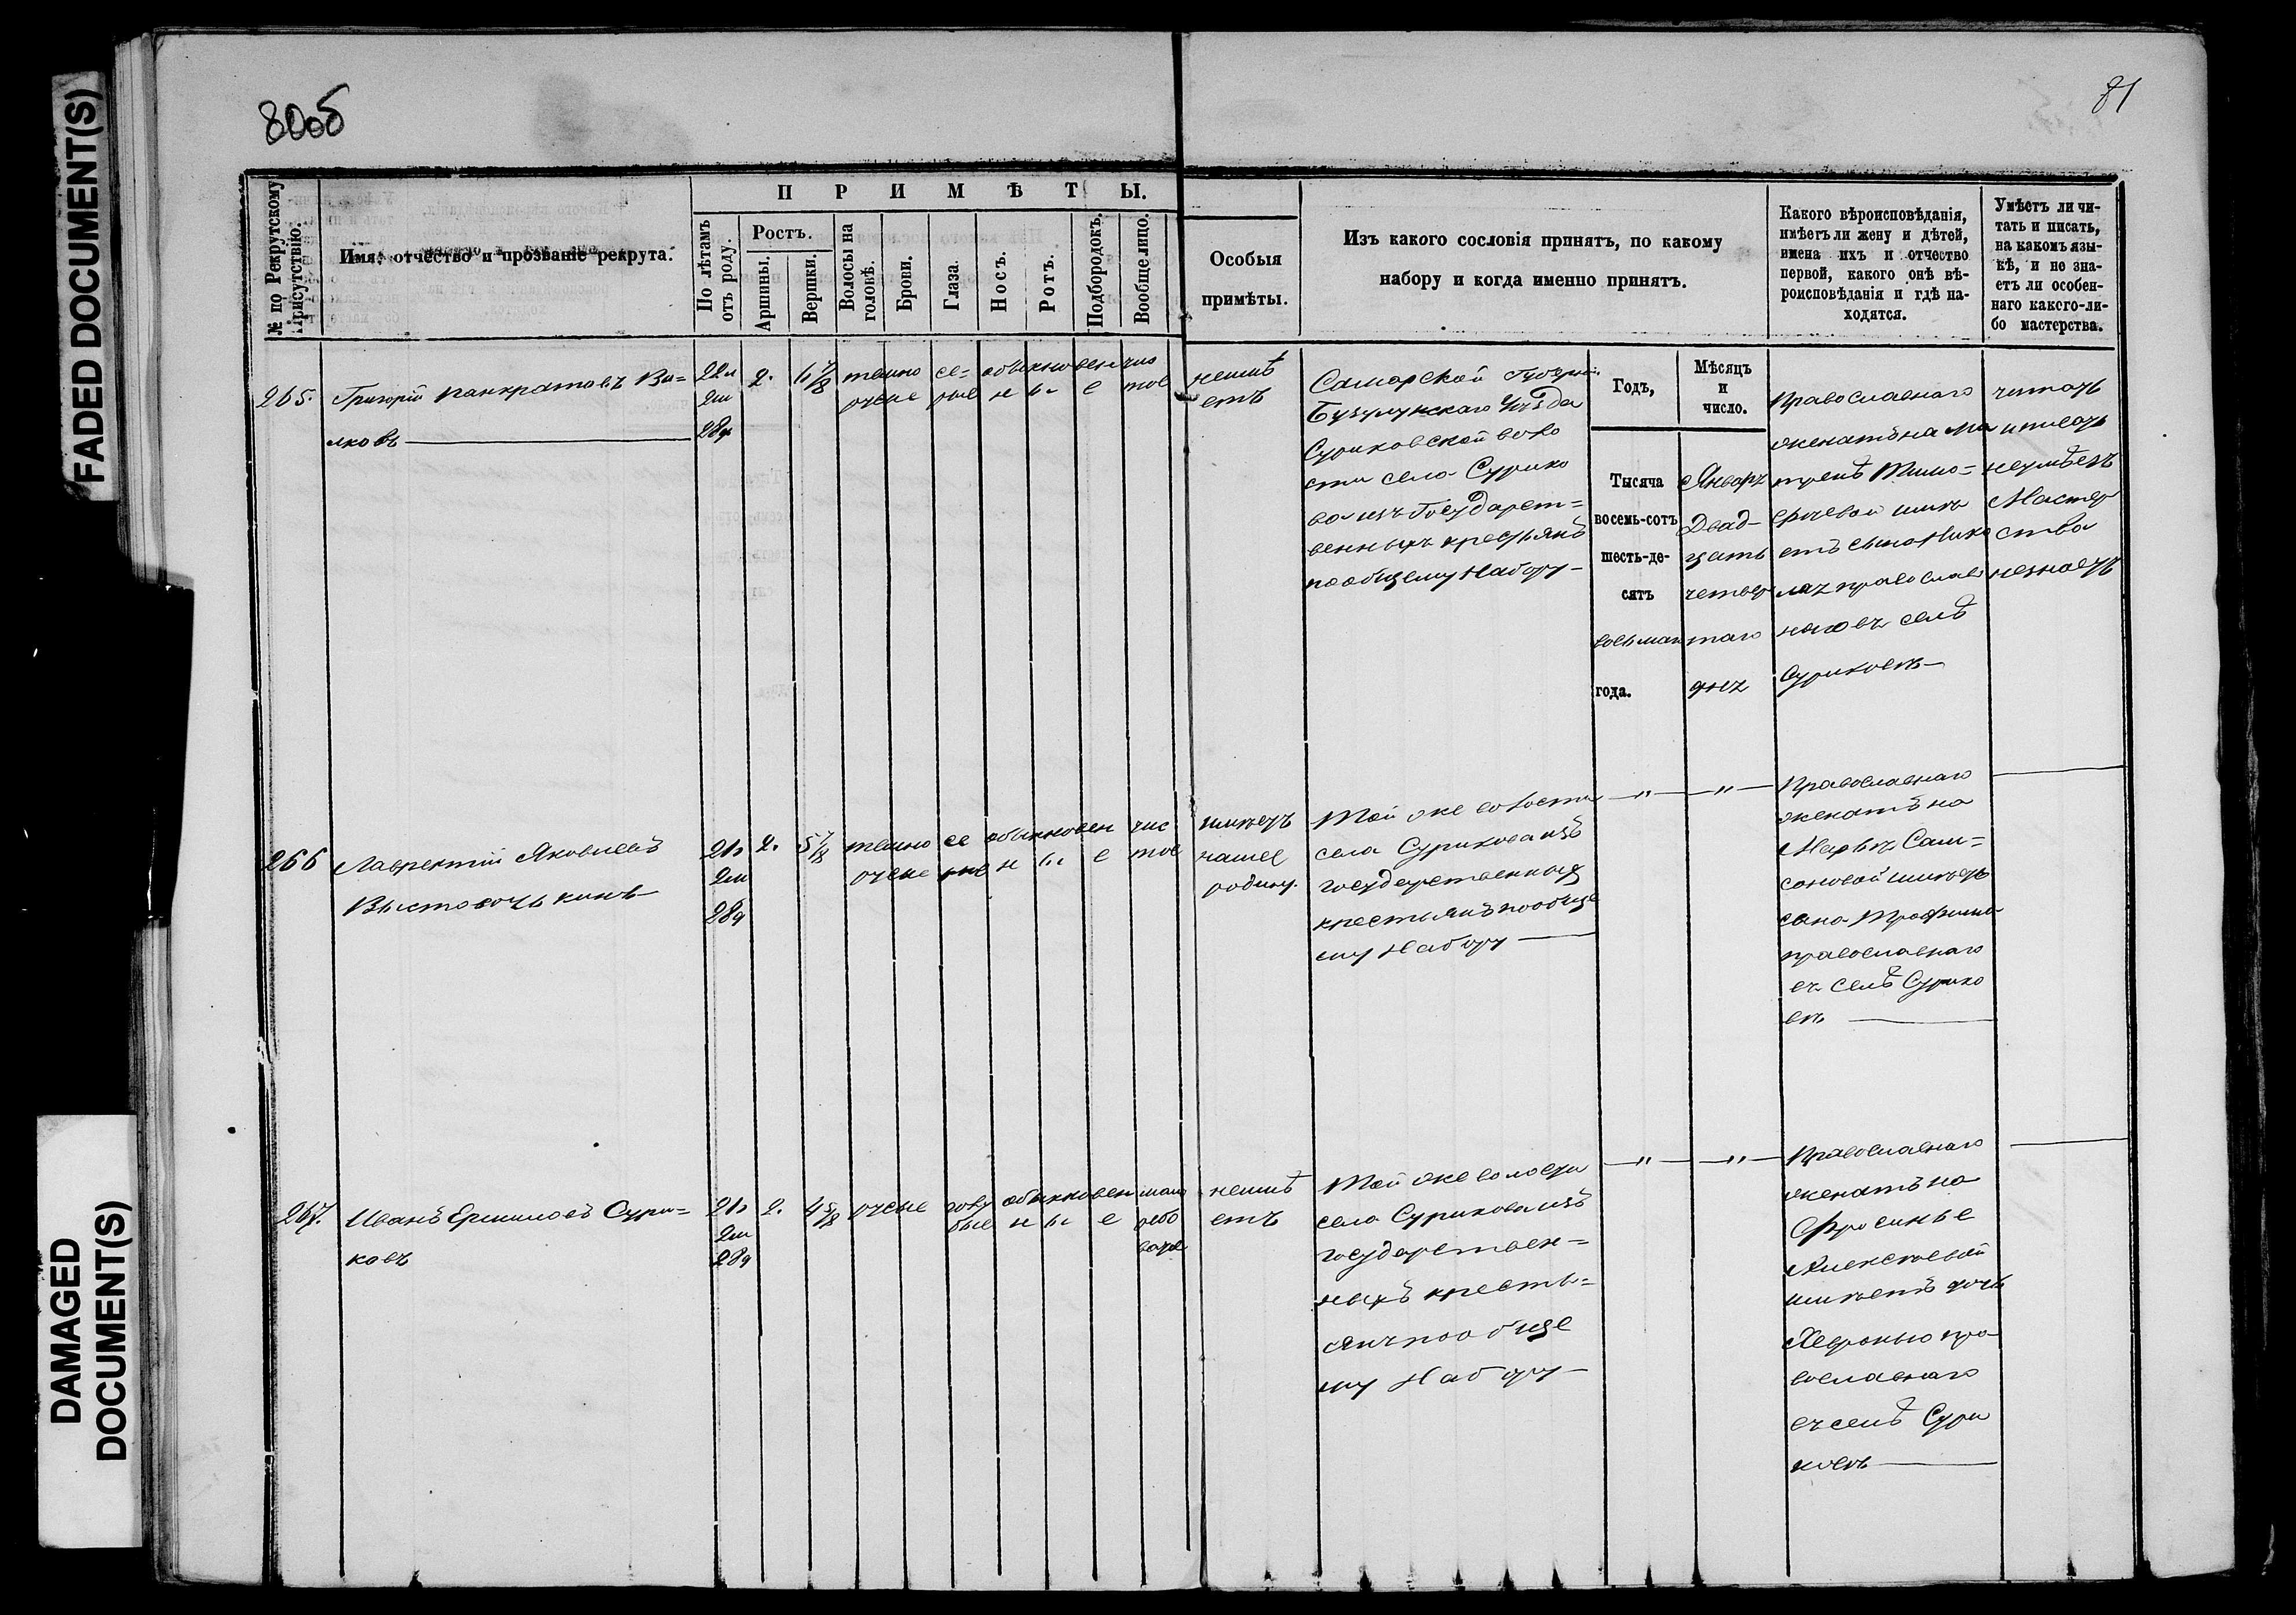 FADED DOCUMENT(S)
DAMAGED
DOCUMENT(S)
80об
81
№ по Рекрутскому Присутствію.
Имя, отчество и прозваніе рекрута.
ПРИМѢТЫ.
По лѣтамъ отъ роду.
Ростъ.
Аршины.
Вершки.
Волосы на головѣ.
Брови.
Глаза.
Носъ.
Ротъ.
Подбородокъ.
Вообще лицо.
Особыя
примѣты.
Изъ какого сословія принятъ, по какому
набору и когда именно принятъ.
Какого вѣроисповѣданія,
имѣетъ ли жену и дѣтей,
имена ихъ и отчество
первой, какого онѣ вѣ-
роисповѣданія и гдѣ на-
ходятся.
Умѣетъ ли чи-
тать и писать,
на какомъ язы-
кѣ, и не зна-
етъ ли особен-
наго какого-ли-
бо мастерства.
265.
Григорій Панкратовъ Ви-
лковъ
22л
2м
28д
2.
6 7/8
темно
русые
се-
рые
обыкновен
н ы е
чис
тое
неимѣ
етъ
Самарской Губерніи
Бузулукскаго Уѣзда
Суриковской воло
сти села Сурико
ва изъ Государст=
венныхъ крестьянъ
пообщему Набору
Годъ,
Мѣсяцъ
и
число.
Тысяча
восемь-сотъ
шесть-де-
сятъ
восьмаго
года.
Январь
Двад-
цать
четвер
таго
дня
Православнаго
женатъ на Ма
тренѣ Тимо=
феевой имѣ
етъ сына Нико
лая православ
наго въ селѣ
Суриковѣ
читать
и писать
неумѣетъ
Мастер
ства
незнаетъ
266
Лаврентій Яковлевъ
21л
2м
28д
2.
5 7/8
темно
русые
се
рые
обыкновен
н ы е
чис
тое
имѣетъ
на шее
родину.
Той же волости
села Сурикова изъ
государственныхъ
крестьянъ пообще
му Набору
Православнаго
женатъ на
Марьѣ Сам=
соновой имѣетъ
сына Трофима
православнаго
въ селѣ Сурико
вѣ
267.
Иванъ Ермиловъ Сури=
ковъ
21л
2м
28д
2.
4 5/8
русые
голу
бые
обыкновен
н ы е
неимѣ
етъ
Той же волости
села Сурикова изъ
государствен=
ныхъ кресть=
янъ по обще
му Набору
Православнаго
женатъ на
Фросинье
Алексѣевой
имѣетъ дочь
Хевронью пра
вославнаго
въ селѣ Сури
ковѣ